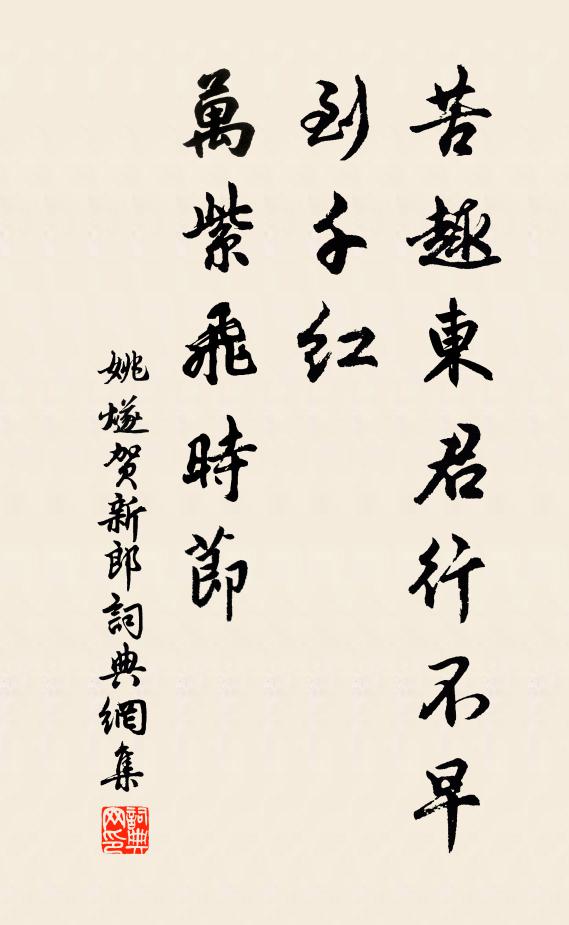 苦趣東君行不早
到千紅
萬紫飛時節
姚燧賀新郎詞典網集
詞典
网印